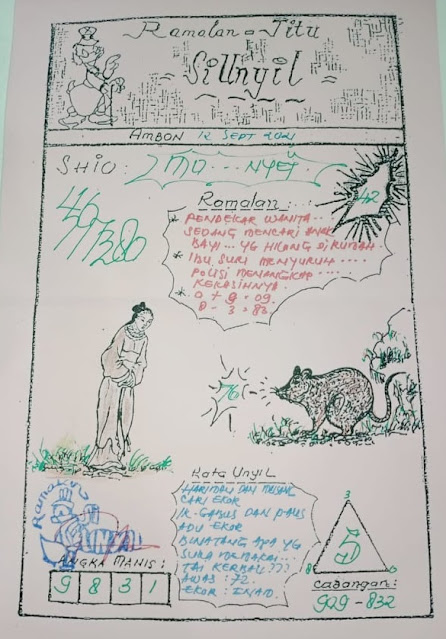 Ramalan = Jitu
SiUnyil
AMBON 12 SEPT 2021
SHIO: MO...NYET
42
Ramalan:
* PENDEKAR WANITA..
SEDANG MENCARI ANAK
BAYI... YG HILANG DI RUMAH.
* IBU SURI MENYURUH....
POLISI MENANGKAP...
KEKASIHNYA.
* 0 + 9 = 09.
8 - 3 = 83.
76
Kata UnyiL
HARIMAU DAN MUSANG
CARI EKOR
IK-GABUS DAN PAUS
ADU EKOR
BINATANG APA YG
SUKA MEMAKAI...
TAI KERBAU???
AWAS: 72.
EKOR: ENAM.
Ramalan
Jitu
UNYIL
ANGKA MANIS:
9 8 3 1
3
5
8
0
Cadangan:
929 - 832